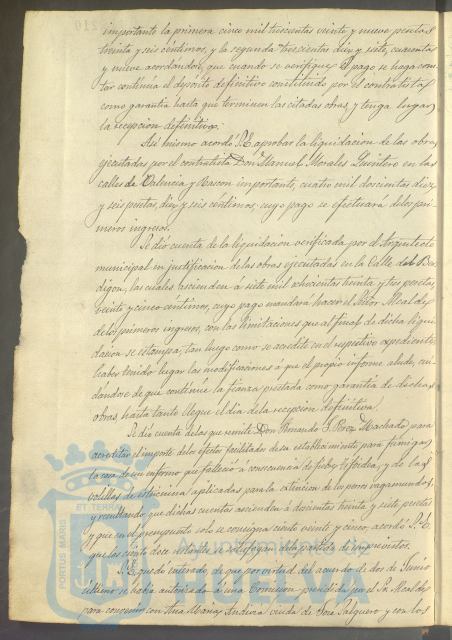 importante la primera cinco mil trescientas veinte y nueve pesetas
treinta y seis céntimos, y la segunda trescientas diez y siete, cuarenta
y nueve acordándose, que cuando se verifique el pago se haga con-
tar continúa el deposito definitivo constituido por el contratista
como garantia hasta que terminen las citadas obras, y tenga lugar
la recepcion definitiva.
Asi mismo acordó S.E. aprobar la liquidacion de las obras
ejecutadas por el contratista Don Manuel Morales Quintero en las
calles de Valencia y Rascon importante, cuatro mil doscientas diez
y seis pesetas, diez y seis centimos, cuyo pago se efectuará de los pri-
meros ingresos.
Se dió cuenta de la liquidacion verificada por el Arquitecto
municipal en justificacion de las obras ejecutadas en la Calle del
digon, las cuales ascienden á siete mil ochocientas treinta y tres pesetas
veinte y cinco céntimos, cuyo pago mandará hacer el Señor Alcalde
de los primeros ingresos, con las limitaciones que al final de dicha liqui-
dacion se estampa, tan luego como se acredite en el respectivo expediente
haber tenido lugar las modificaciones á que el propio informe alude, cui-
dándose de que continúe la fianza prestada como garantia de dichas
obras, hasta tanto llegue el dia de la recepcion definitiva.
Se dió cuenta de las que remite Don Fernando J. Perez Machado para
acreditar el importe de los efectos facilitados de su establecimiento para fumigar
la casa de un enfermo que falleció a consecuencia de fiebre tifoidea, y de las
bolillas de estricnina aplicadas para la extincion de los perros vagamundos,
y resultando que dichas cuentas ascienden á doscientas treinta y siete pesetas
y que en el presupuesto solo se consigna ciento veinte y cinco acordó S.E.
que las ciento doce restante se satisfagan de la partida de imprevistos.
S.E. quedó enterado, de que por virtud del acuerdo de dos de Junio
último se habia autorizado á una Comision presidida por el Sr. Alcalde
para convenir con Ana Maria viuda de José Salguero y con los
PORTUS MARIS ET TERRAE
Ayuntamiento de
HUELVA